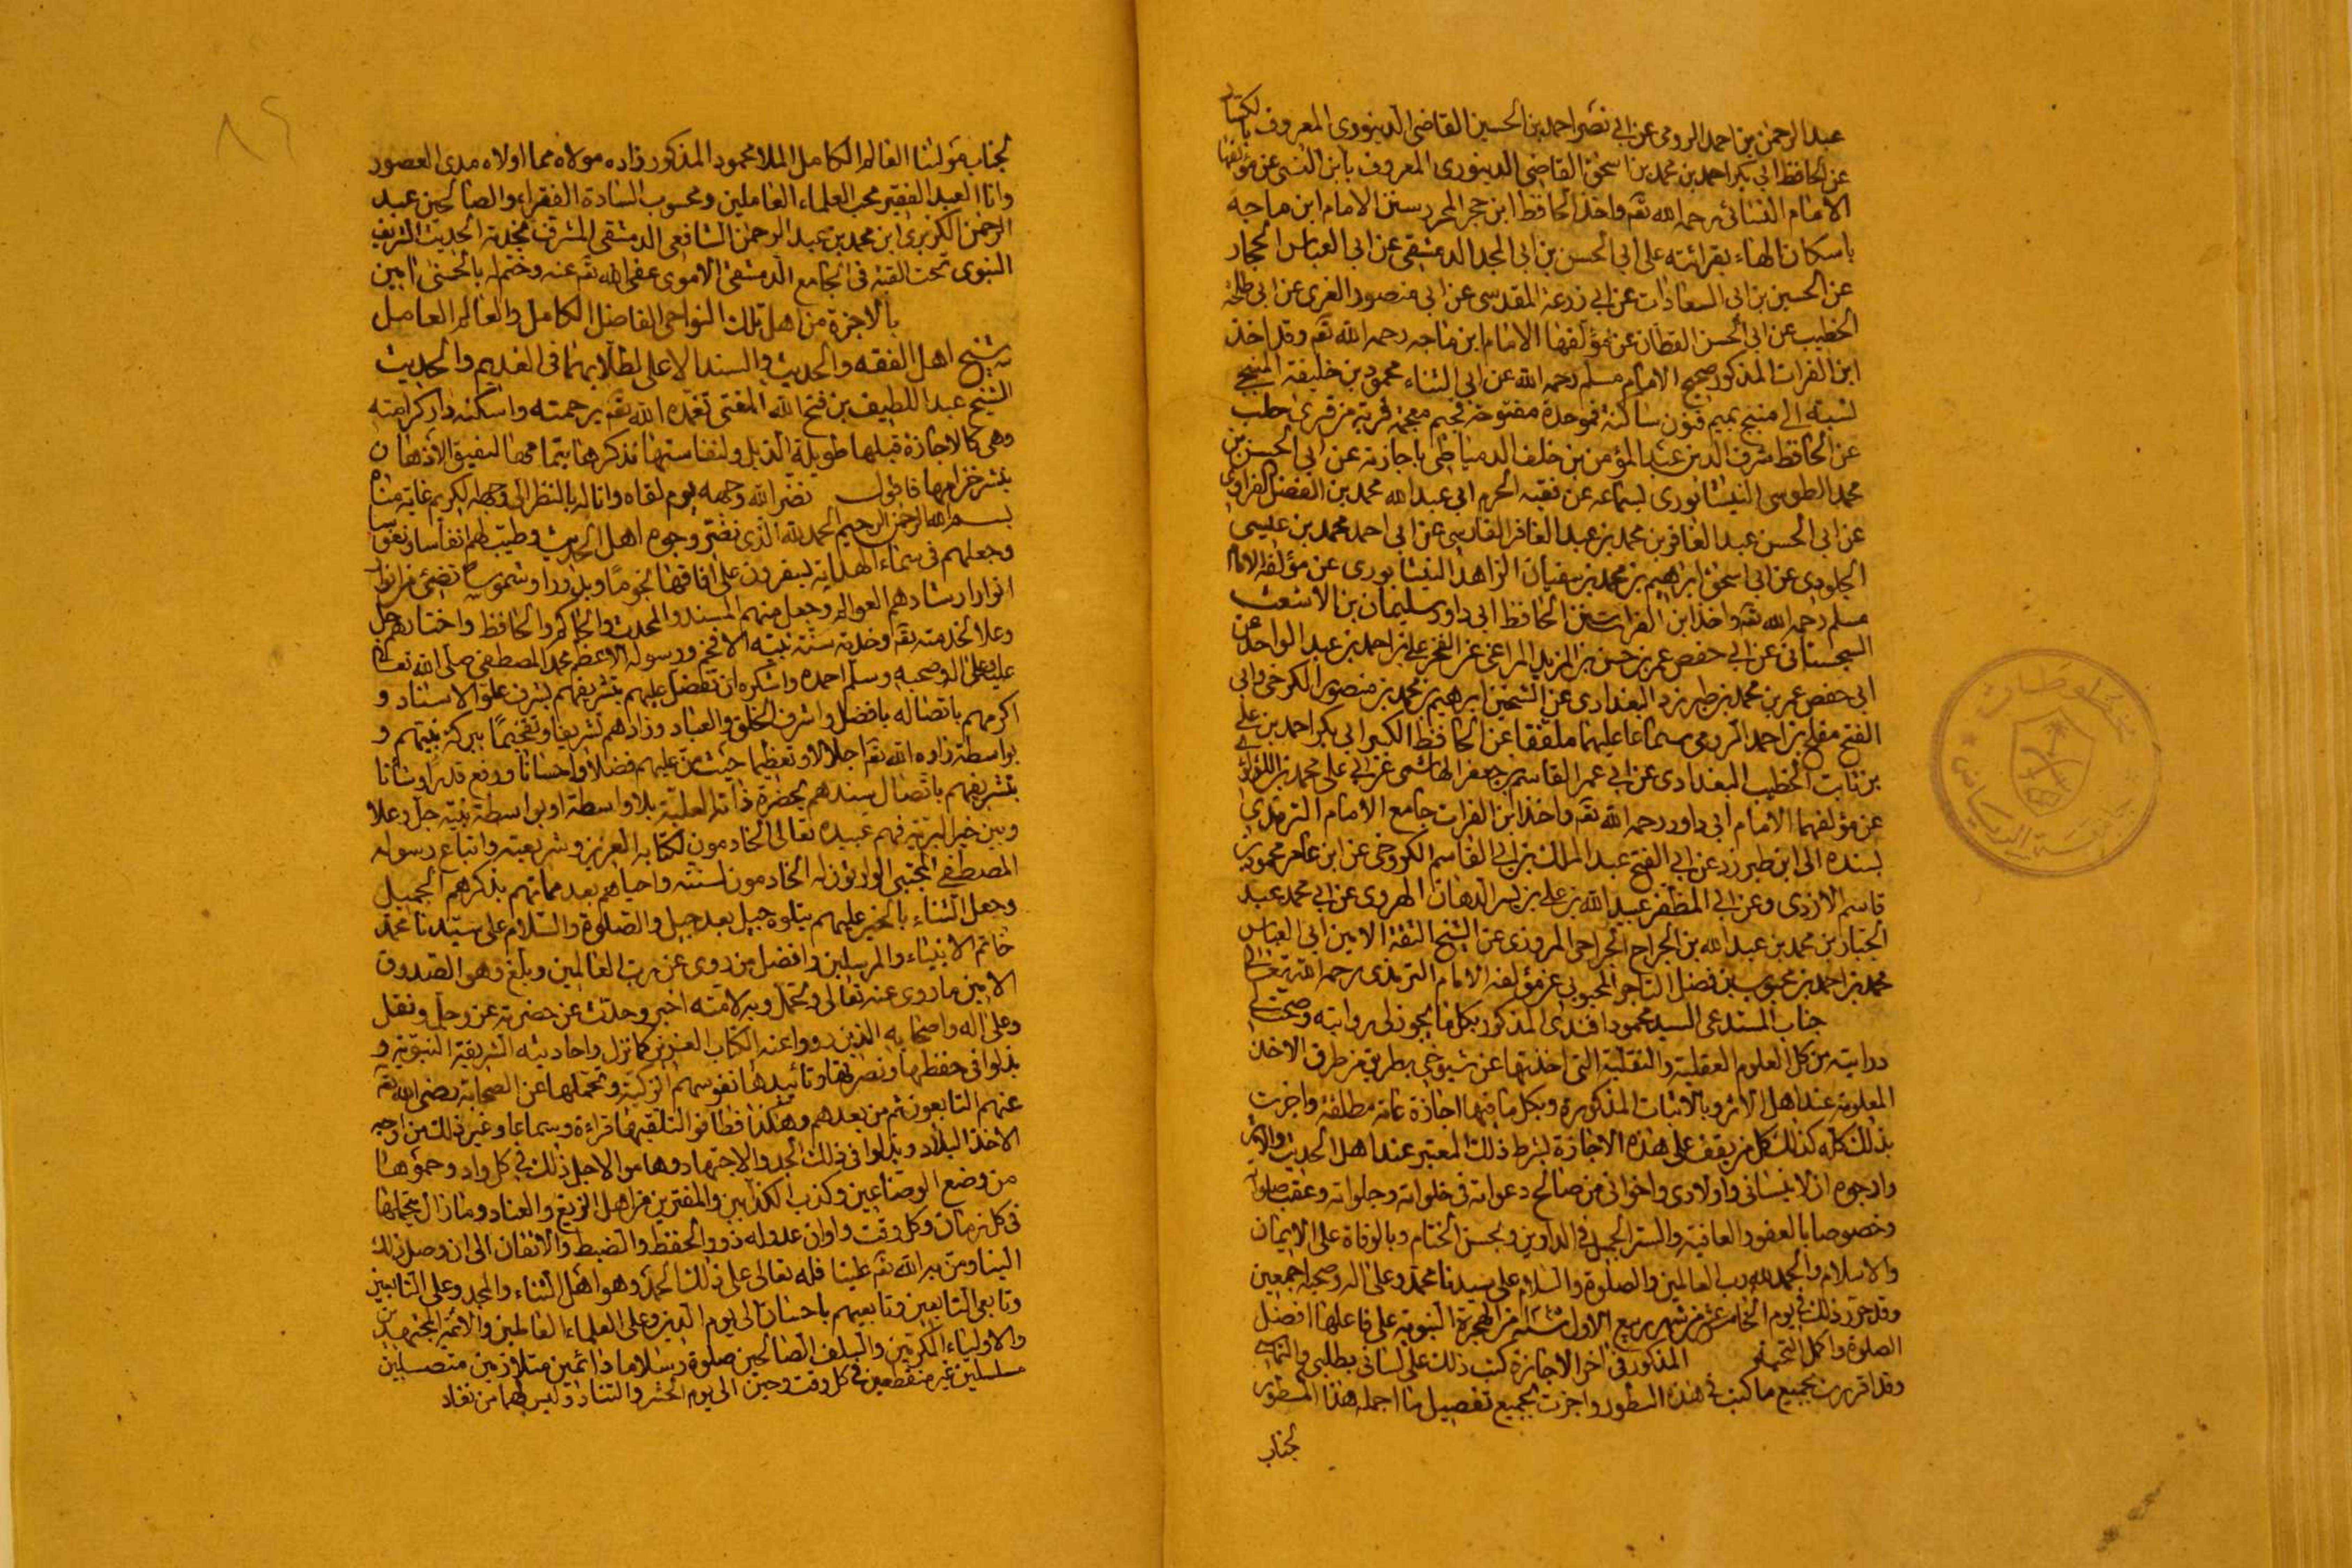 عبد الرحمن بن احمد الرومى عن ابى نصر احمد بن الحسين القاضى الدينورى المعروف بالكسار
عن الحافظ ابى بكر احمد بن محمد بن اسحق القاضى الدينورى المعروف بابن السنى عن مؤلفها
الامام النسائى رحمه الله تقه واخذ الحافظ ابن حجر المحرر سنن الامام ابن ماجه
باسكان الهاء بقرائته على ابى الحسن بن ابى المجد الدمشقى عن ابى العباس الحجار
عن الحسين بن ابى السعادات عن ابى زرعة المقدسى عن ابى منصور الغرى عن ابى طلحة
الخطيب عن ابى الحسن القطان عن مؤلفها الامام ابن ماجه رحمه الله تقه وقد اخذ
ابن الفرات المذكور صحيح الامام مسلم رحمه الله عن ابى الثناء محمود بن خليفة المنبجى
نسبة الى منبج بميم فنون ساكنة فموحدة مفتوحة فجيم معجمة قرية من قرى حلب
عن الحافظ شرف الدين عبد المؤمن بن خلف الدمياطى باجازته عن ابى الحسن بن
محمد الطوسى النيشابورى بسماعه عن فقيه الحرم ابى عبد الله محمد بن الفضل الفراوى
عن ابى الحسن عبد الغافر بن محمد بن عبد الغافر الفارسى عن ابى احمد محمد بن عيسى
الجلودى عن ابى اسحق ابراهيم بن محمد بن سفيان الزاهد النيشابورى عن مؤلفه الامام
مسلم رحمه الله تقه واخذ ابن الفرات سنن الحافظ ابى داود سليمان بن الاشعث
السجستانى عن ابى حفص عمر بن حسن بن المزيد المراغى عن الفخر على بن احمد بن عبد الواحد عن
ابى حفص عمر بن محمد بن طبرزد البغدادى عن الشيخين ابرهيم بن محمد بن منصور الكرخى وابى
الفتح مفلح بن احمد الرومى سماعا عليهما ملفقا عن الحافظ الكبير ابى بكر احمد بن على
بن ثابت الخطيب البغدادى عن ابى عمر القاسم بن جعفر الهاشمى عن ابى على محمد بن اللؤلؤى
عن مؤلفها الامام ابى داود رحمه الله تقه واخذ ابن الفرات جامع الامام الترمذى
بسنده الى ابن طبرزد عن ابى الفتح عبد الملك بن ابى القاسم الكروخى عن ابن عامر محمود بن
قاسم الازدى وعن ابى المظفر عبيد الله بن على بن يسر الدهان الهروى عن ابى محمد عبد
الجبار بن محمد بن عبد الله بن الجراح الجراحى المروزى عن الشيخ الثقة الامين ابى العباس
محمد بن احمد بن محبوب بن فضل التاجر المحبوبى عن مؤلفه الامام الترمذى رحمه الله تعالى
جناب المستدعى السيد محمود افندى المذكور بكل ما يجوز لى روايته وصحت لى
درايته من كل العلوم العقلية والنقلية التى اخذتها عن شيوخى بطريق من طرق الاخذ
المعلومة عند اهل الاثر وبالاثبات المذكورة وبكل ما فيها اجازة عامة مطلقة واجزت
بذلك كله كذلك كل من يقف على هذه الاجازة بشرط ذلك المعتبر عند اهل الحديث والاثر
وارجوه ان لا ينسانى واولادى واخوانى من صالح دعواته فى خلواته وجلواته وعقب صلواته
وخصوصا بالعفو والعافية والستر الجميل فى الدارين وبحسن الختام وبالوفاة على الايمان
والاسلام والحمد لله رب العالمين والصلوة والسلام على سيدنا محمد وعلى اله وصحبه اجمعين
وقد حرر ذلك فى يوم الخامس عشر من شهر ربيع الاول من الهجرة النبوية على فاعلها افضل
الصلوة واكمل التحية المذكور فى اخر الاجازة كتب ذلك على لسانى بطلبى والتماسى
وقد اقررت بجميع ما كتب فى هذه السطور واجزت بجميع تفصيل ما اجمله هذا المسطور
لجناب
لجناب مولانا العالم الكامل الملا محمود المذكور زاده مولاه مما اولاه مدى العصور
وانا العبد الفقير محب العلماء العاملين ومحسوب السادة الفقراء والصالحين عبد
الرحمن الكزبرى ابن محمد بن عبد الرحمن الشافعى الدمشقى المشرف بخدمة الحديث الشريف
النبوى تحت القبة فى الجامع الدمشقى الاموى عفى الله تقه عنه وختم له بالحسنى امين
بالاجزة من اهل تلك النواحى الفاضل الكامل والعالم العامل
شيخ اهل الفقه والحديث والسند الاعلى لطلابهما فى القديم والحديث
الشيخ عبد اللطيف بن فتح الله المفتى تغمده الله تقه برحمته واسكنه دار كرامته
وهى كالاجازة قبلها طويلة الذيل ولنفاستها نذكرها بتمامها لتفيق الاذهان
بنشر خزامها فاقول نضر الله وجهه يوم لقاه واناله بالنظر الى وجهه الكريم غاية مناه
بسم الله الرحمن الرحيم الحمد لله الذى نضر وجوه اهل الحديث وطيب لهم انفاسا ونفوسا
وجعلهم فى سماء الهداية يسفرون على افاقها نجوما وبدورا وشموسا تضئ من انوار
انوار ارشادهم العوالم وجعل منهم المسند والمحدث والحاكم والحافظ واختارهم جل
وعلا لخدمته تقه وخدمة سنة نبيه الافخم ورسوله الاعظم محمد المصطفى صلى الله تعالى
عليه وعلى اله وصحبه وسلم احمده واشكره ان تفضل عليهم بتشريفهم بشرف علو الاسناد و
اكرمهم باتصاله بافضل واشرف الخلق والعباد وزادهم تشريفا وتفخيما ببركة نبيهم و
بواسطة زاده الله تقه اجلالا وتعظيما حيث من عليهم فضلا واحسانا ورفع قدرا وشانا
بتشريفهم باتصال سندهم بحضرة ذاته العلية بلا واسطة او بواسطة نبيه جل وعلا
وبين خير البرية فهم عبيده تعالى الخادمون لكتابه العزيز وشريعته واتباع رسوله
المصطفى المجتبى الوارثون له الخادمون لسنته واحياهم بعد مماتهم بذكرهم الجميل
وجعل الثناء بالخير عليهم يتلوه جيل بعد جيل والصلوة والسلام على سيدنا محمد
خاتم الانبياء والمرسلين وافضل من روى عن رب العالمين وبلغ وهو الصدوق
الامين ما روى عنه تعالى وتحمل وبه لامته اخبر وحدث عن حضرته عز وجل ونقل
وعلى اله واصحابه الذين رووا عنه الكتاب العزيز كما نزل واحاديثه الشريفة النبوية و
بذلوا فى حفظها ونصرتها وتأييدها نفوسهم الزكية وتحملها عن الصحابة رضى الله تقه
عنهم التابعون ثم من بعدهم وهكذا فطافوا لتلقيها قراءة وسماعا وغير ذلك من اوجه
الاخذ البلاد وبذلوا فى ذلك الجد والاجتهاد وهاموا لاجل ذلك فى كل واد وحموها
من وضع الوضاعين وكذب الكذابين والمفترين من اهل الزيغ والعناد وما زال يتحملها
فى كل زمان وكل وقت واوان عدوله ذوو الحفظ والضبط والاتقان الى ان وصل ذلك
الينا ومن به الله تقه علينا فله تعالى على ذلك الحمد وهو اهل الثناء والمجد وعلى التابعين
وتابعى التابعين وتابعيهم باحسان الى يوم الدين وعلى العلماء العالمين والائمة المجتهدين
والاولياء المكرمين والسلف الصالحين صلوة وسلاما دائمين متلازمين متصلين
مسلسلين غير منقطعين فى كل وقت وحين الى يوم الحشر والتناد وليس لهما من نفاد
٨٦
مخطوطات
جامعة الرياض